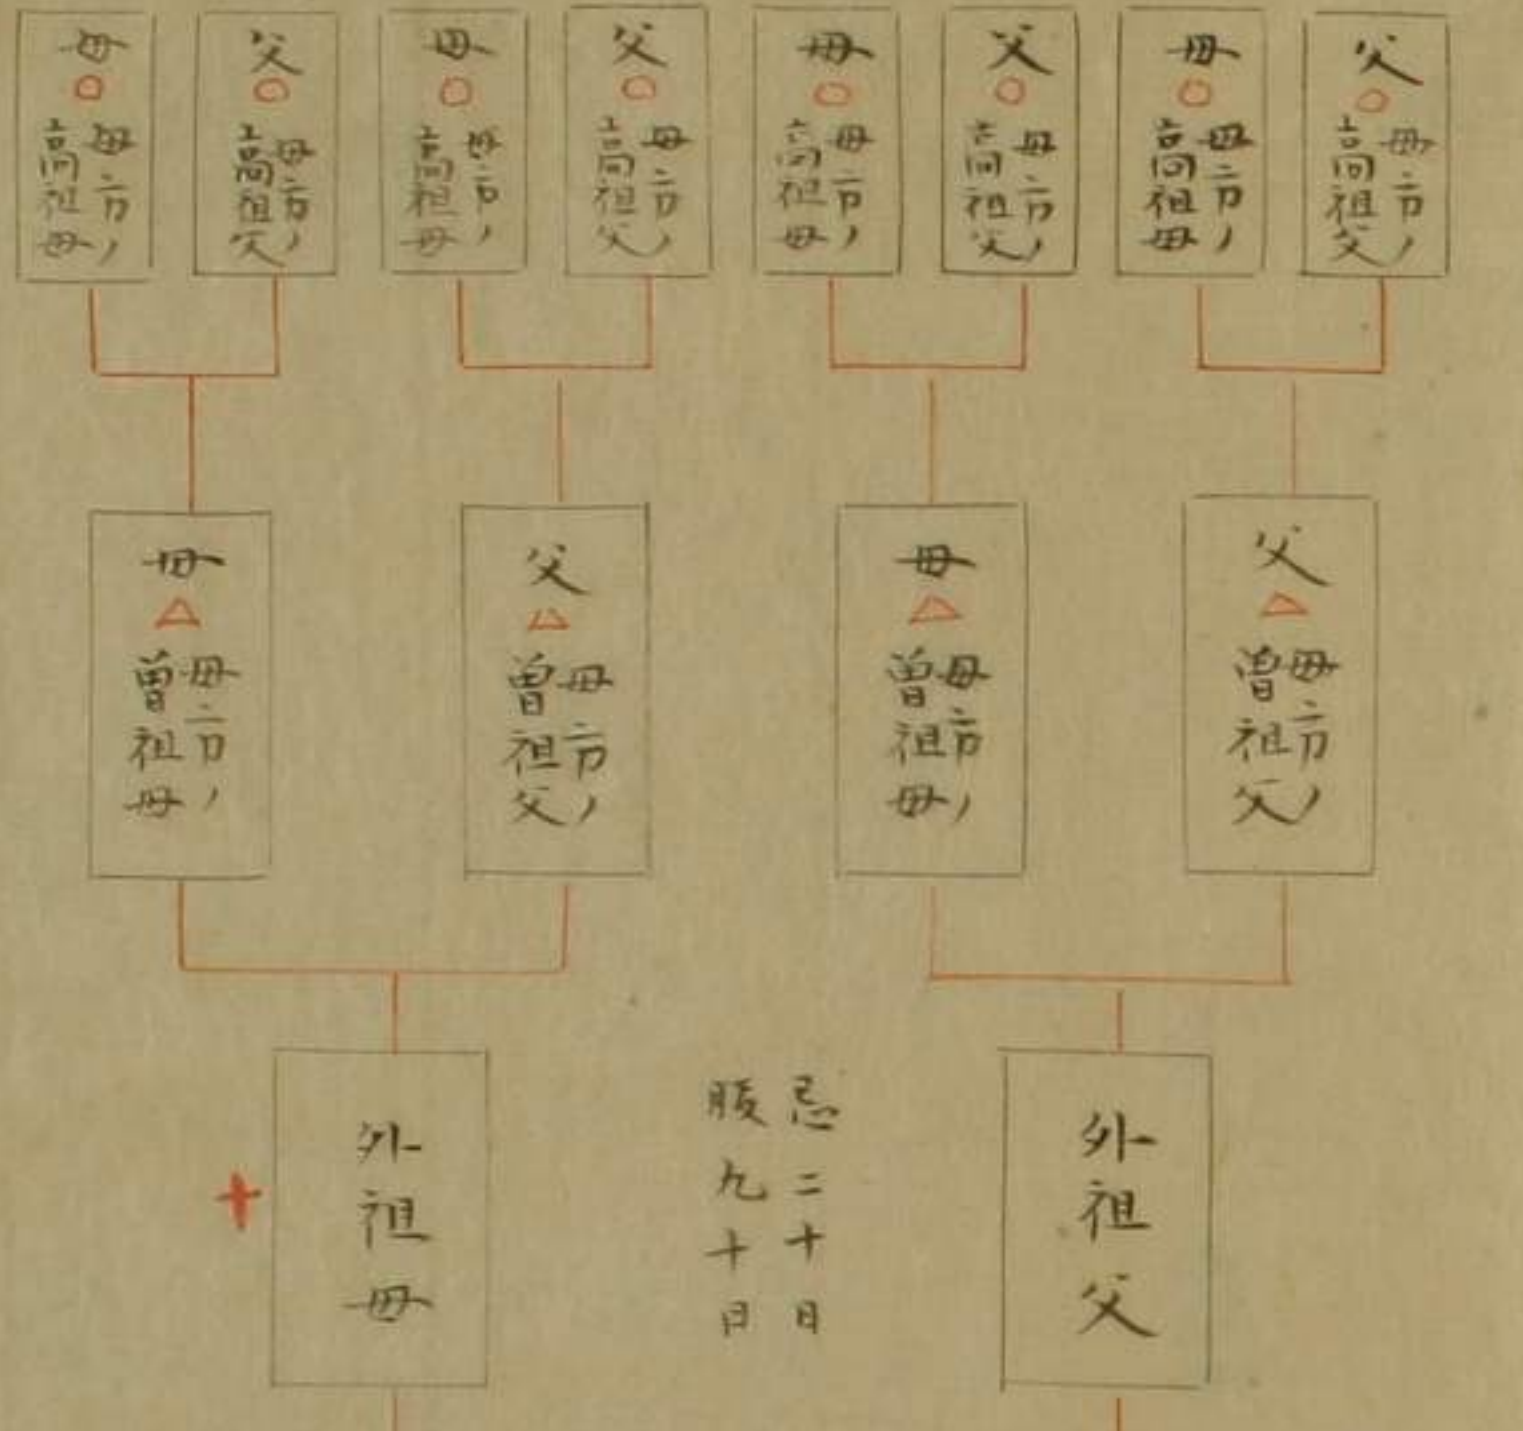 父
○
母方ノ
高祖父
母
○
母方ノ
高祖母
父
○
母方ノ
高祖父
母
○
母方ノ
高祖母
父
○
母方ノ
高祖父
母
○
母方ノ
高祖母
父
○
母方ノ
高祖父
母
○
母方ノ
高祖母
父
△
母方ノ
曽祖父
母
△
母方ノ
曽祖母
父
△
母方ノ
曽祖父
母
△
母方ノ
曽祖母
外祖父
忌二十日
服九十日
外祖母